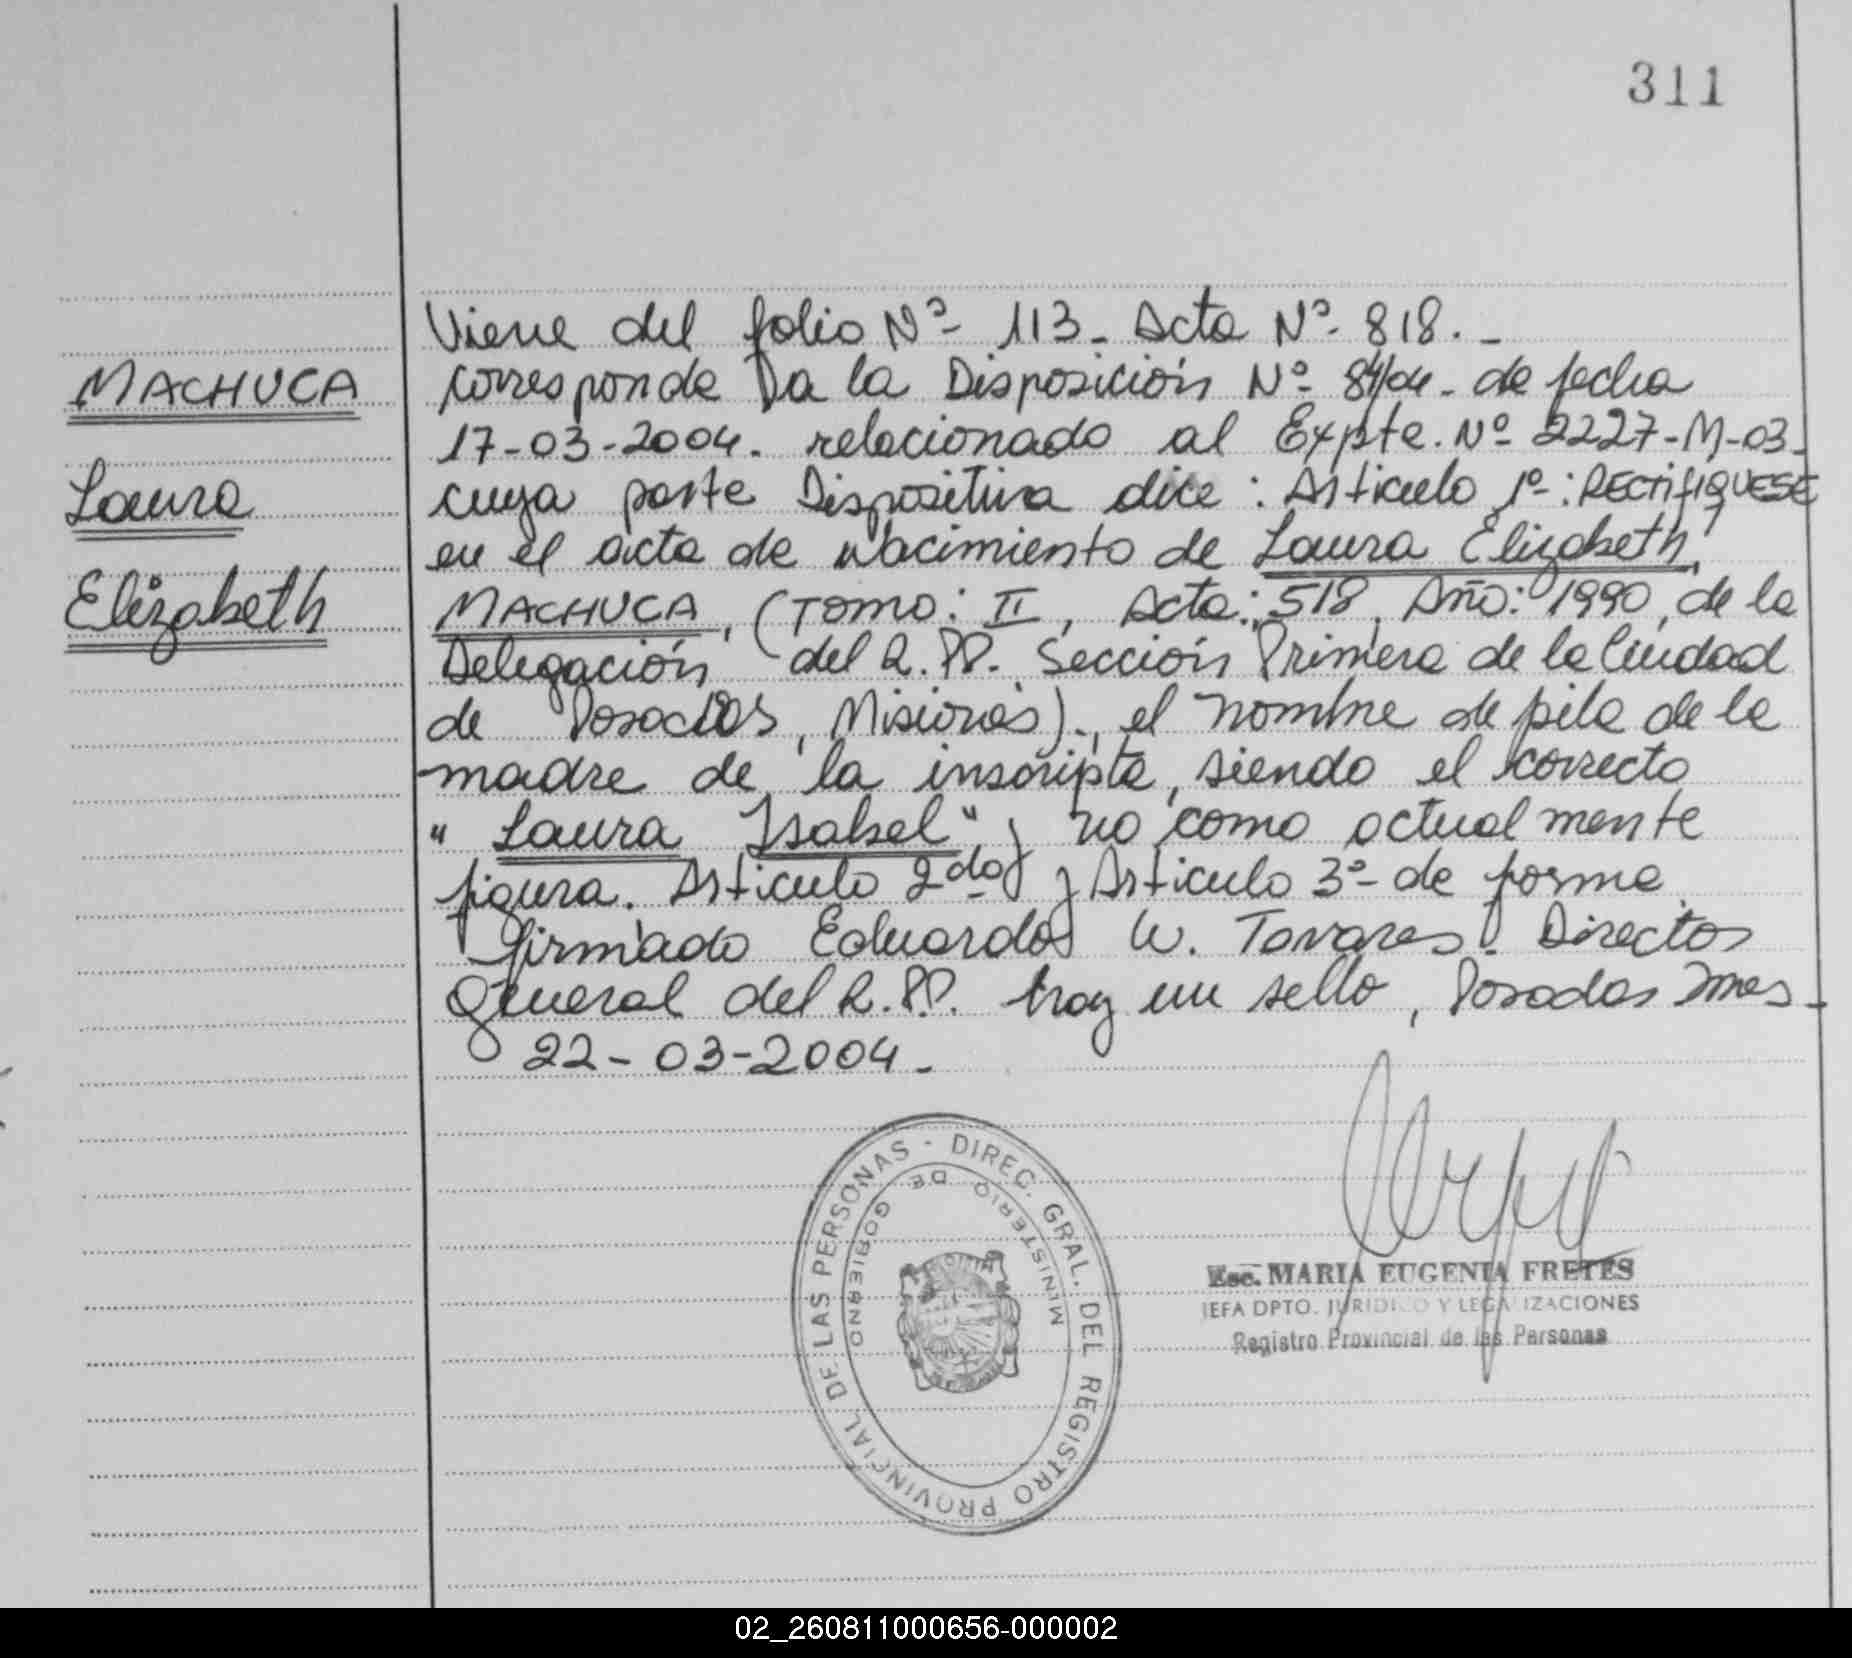 311
Viene del folio Nº- 113- Acta Nº- 818.-
MACHUCA
Laura
Elizabeth
corresponde a la Disposición Nº- 84/04- de fecha
17-03-2004. relacionado al Expte. Nº- 2227-M-03-
cuya parte Dispositiva dice: Articulo 1º-: RECTIFIQUESE
en el acta de nacimiento de Laura Elizabeth
MACHUCA, (TOMO: II, Acta: 518, Año: 1990, de la
Delegación del R.PP. Sección Primera de la Ciudad
de Posadas, Misiones)., el nombre de pila de la
madre de la inscripta, siendo el correcto
"Laura Isabel" y no como actualmente
figura. Articulo 2do y Articulo 3º- de forma
firmado Eduardo W. Tavares- Director
General del R.PP. hay un sello, Posadas Mnes-
22-03-2004-
DIREC. GRAL. DEL REGISTRO PROVINCIAL DE LAS PERSONAS -
MINISTERIO DE GOBIERNO
Esc. MARIA EUGENIA FRETES
JEFA DPTO. JURIDICO Y LEGALIZACIONES
Registro Provincial de las Personas
02_260811000656-000002